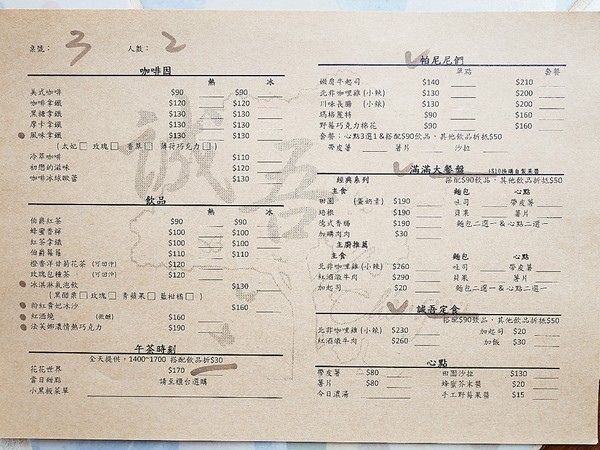 桌號： 3 人數： 2
咖啡因
熱 冰
美式咖啡 $90 $90
咖啡拿鐵 $120 $120
黑糖拿鐵 $130 $130
摩卡拿鐵 $130 $130
風味拿鐵 $130 $130
(太妃 玫瑰 香草 薄荷巧克力)
冷萃咖啡 $110
初戀的滋味 $120
咖啡冰球歐蕾 $130
飲品
熱 冰
伯爵紅茶 $90 $90
蜂蜜香檸 $100 $100
紅茶拿鐵 $100 $100
伯爵 $110 $110
橙香洋甘菊花茶 (可回沖) $120
玫瑰包種茶 (可回沖) $120
冰淇淋氣泡飲 $130
(黑醋栗 玫瑰 青蘋果 藍柑橘)
粉紅貴妃冰沙 $160
紅酒燒 (微醺) $160
法芙娜濃情熱巧克力 $190
午茶時刻
全天提供，1400~1700 搭配飲品折$30
花花世界 $170
當日甜點 請至櫃台選購
小黑板菜單
誠吾
帕尼尼們
單點 套餐
嫩肩牛起司 $140 $210
北非咖哩雞(小辣) $130 $200
川味長腸 (小辣) $130 $200
瑪格麗特 $90 $160
野莓巧克力棉花 $90 $160
套餐：心點3選1&搭配$90飲品，其他飲品折抵$50
帶皮薯 薯片 沙拉
滿滿大餐盤 +$10換購自製果醬
經典系列 搭配$90飲品，其他飲品折抵$50
主食 麵包 心點
田園 (蛋奶素) $190 吐司 帶皮薯
培根 $190 貝果 薯片
德式香腸 $190 麵包二選一 & 心點二選一
加購肉肉 $30
主廚推薦
主食 麵包 心點
北非咖哩雞(小辣) $260 吐司 帶皮薯
紅酒燉牛肉 $290 貝果 薯片
加起司 $20 麵包二選一 & 心點二選一
誠吾定食
搭配$90飲品，其他飲品折抵$50
北非咖哩雞(小辣) $230 加起司 $20
紅酒燉牛肉 $260 加飯 $30
心點
帶皮薯 $80 田園沙拉 $130
薯片 $80 蜂蜜芥末醬 $20
今日濃湯 手工野莓果醬 $15